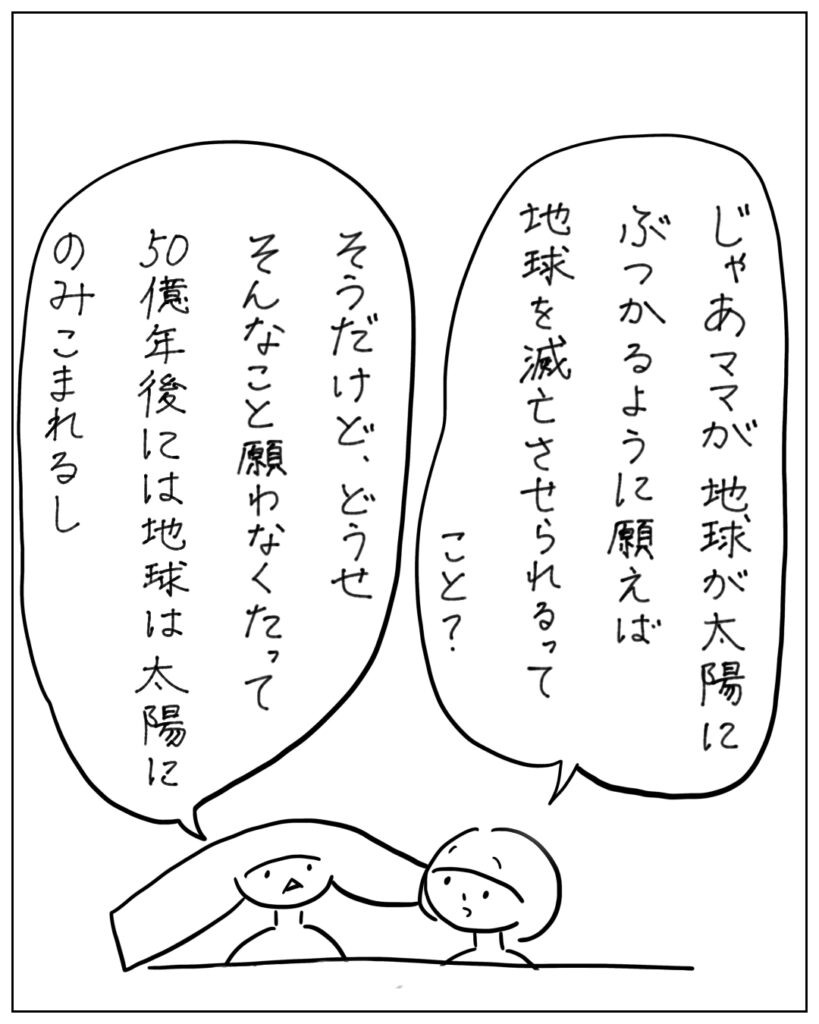 じゃあママが地球が太陽に
ぶつかるように願えば
地球を滅亡させられるって
こと？
そうだけど、どうせ
そんなこと願わなくたって
50億年後には地球は太陽に
のみこまれるし